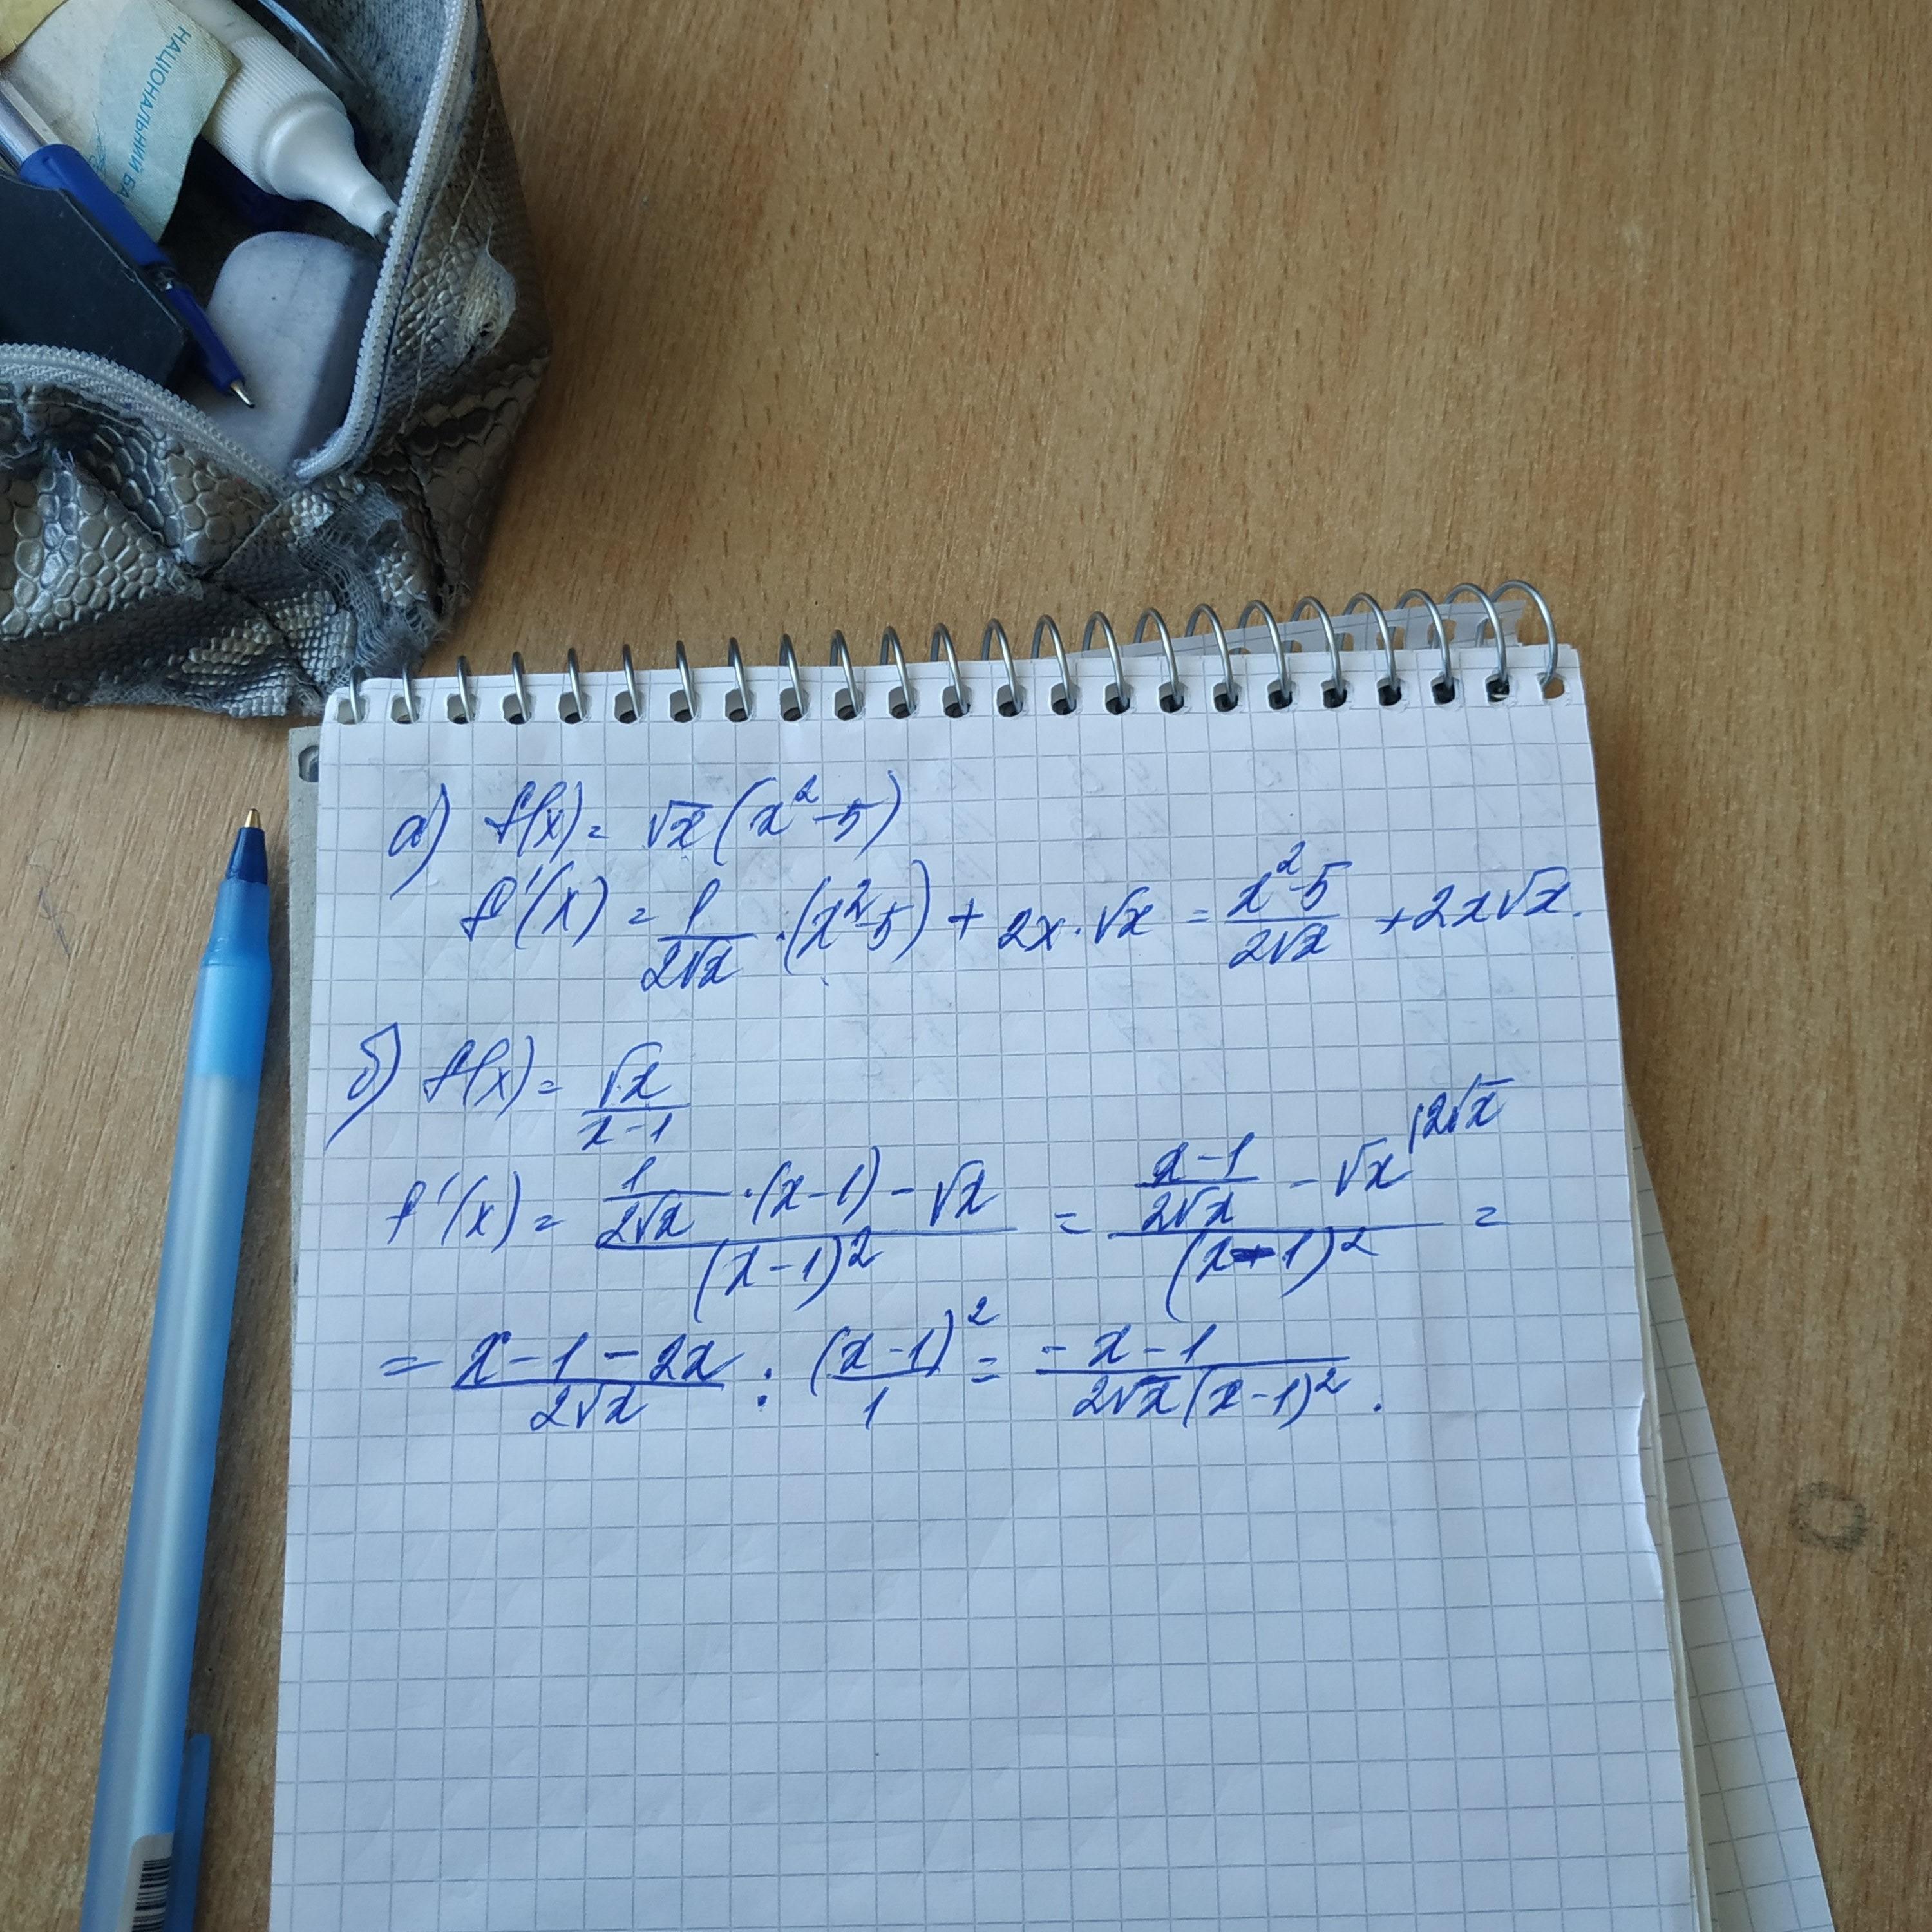 НАЦІОНАЛЬНИЙ БА
а) f(x) = √x (x² - 5)
f'(x) = 1/(2√x) · (x² - 5) + 2x · √x = (x² - 5)/(2√x) + 2x√x.
б) f(x) = √x/(x - 1)
f'(x) = (1/(2√x) · (x - 1) - √x)/(x - 1)² = ((x - 1)/(2√x) - √x |2√x)/(x - 1)² =
= (x - 1 - 2x)/(2√x) : (x - 1)²/1 = (-x - 1)/(2√x(x - 1)²).